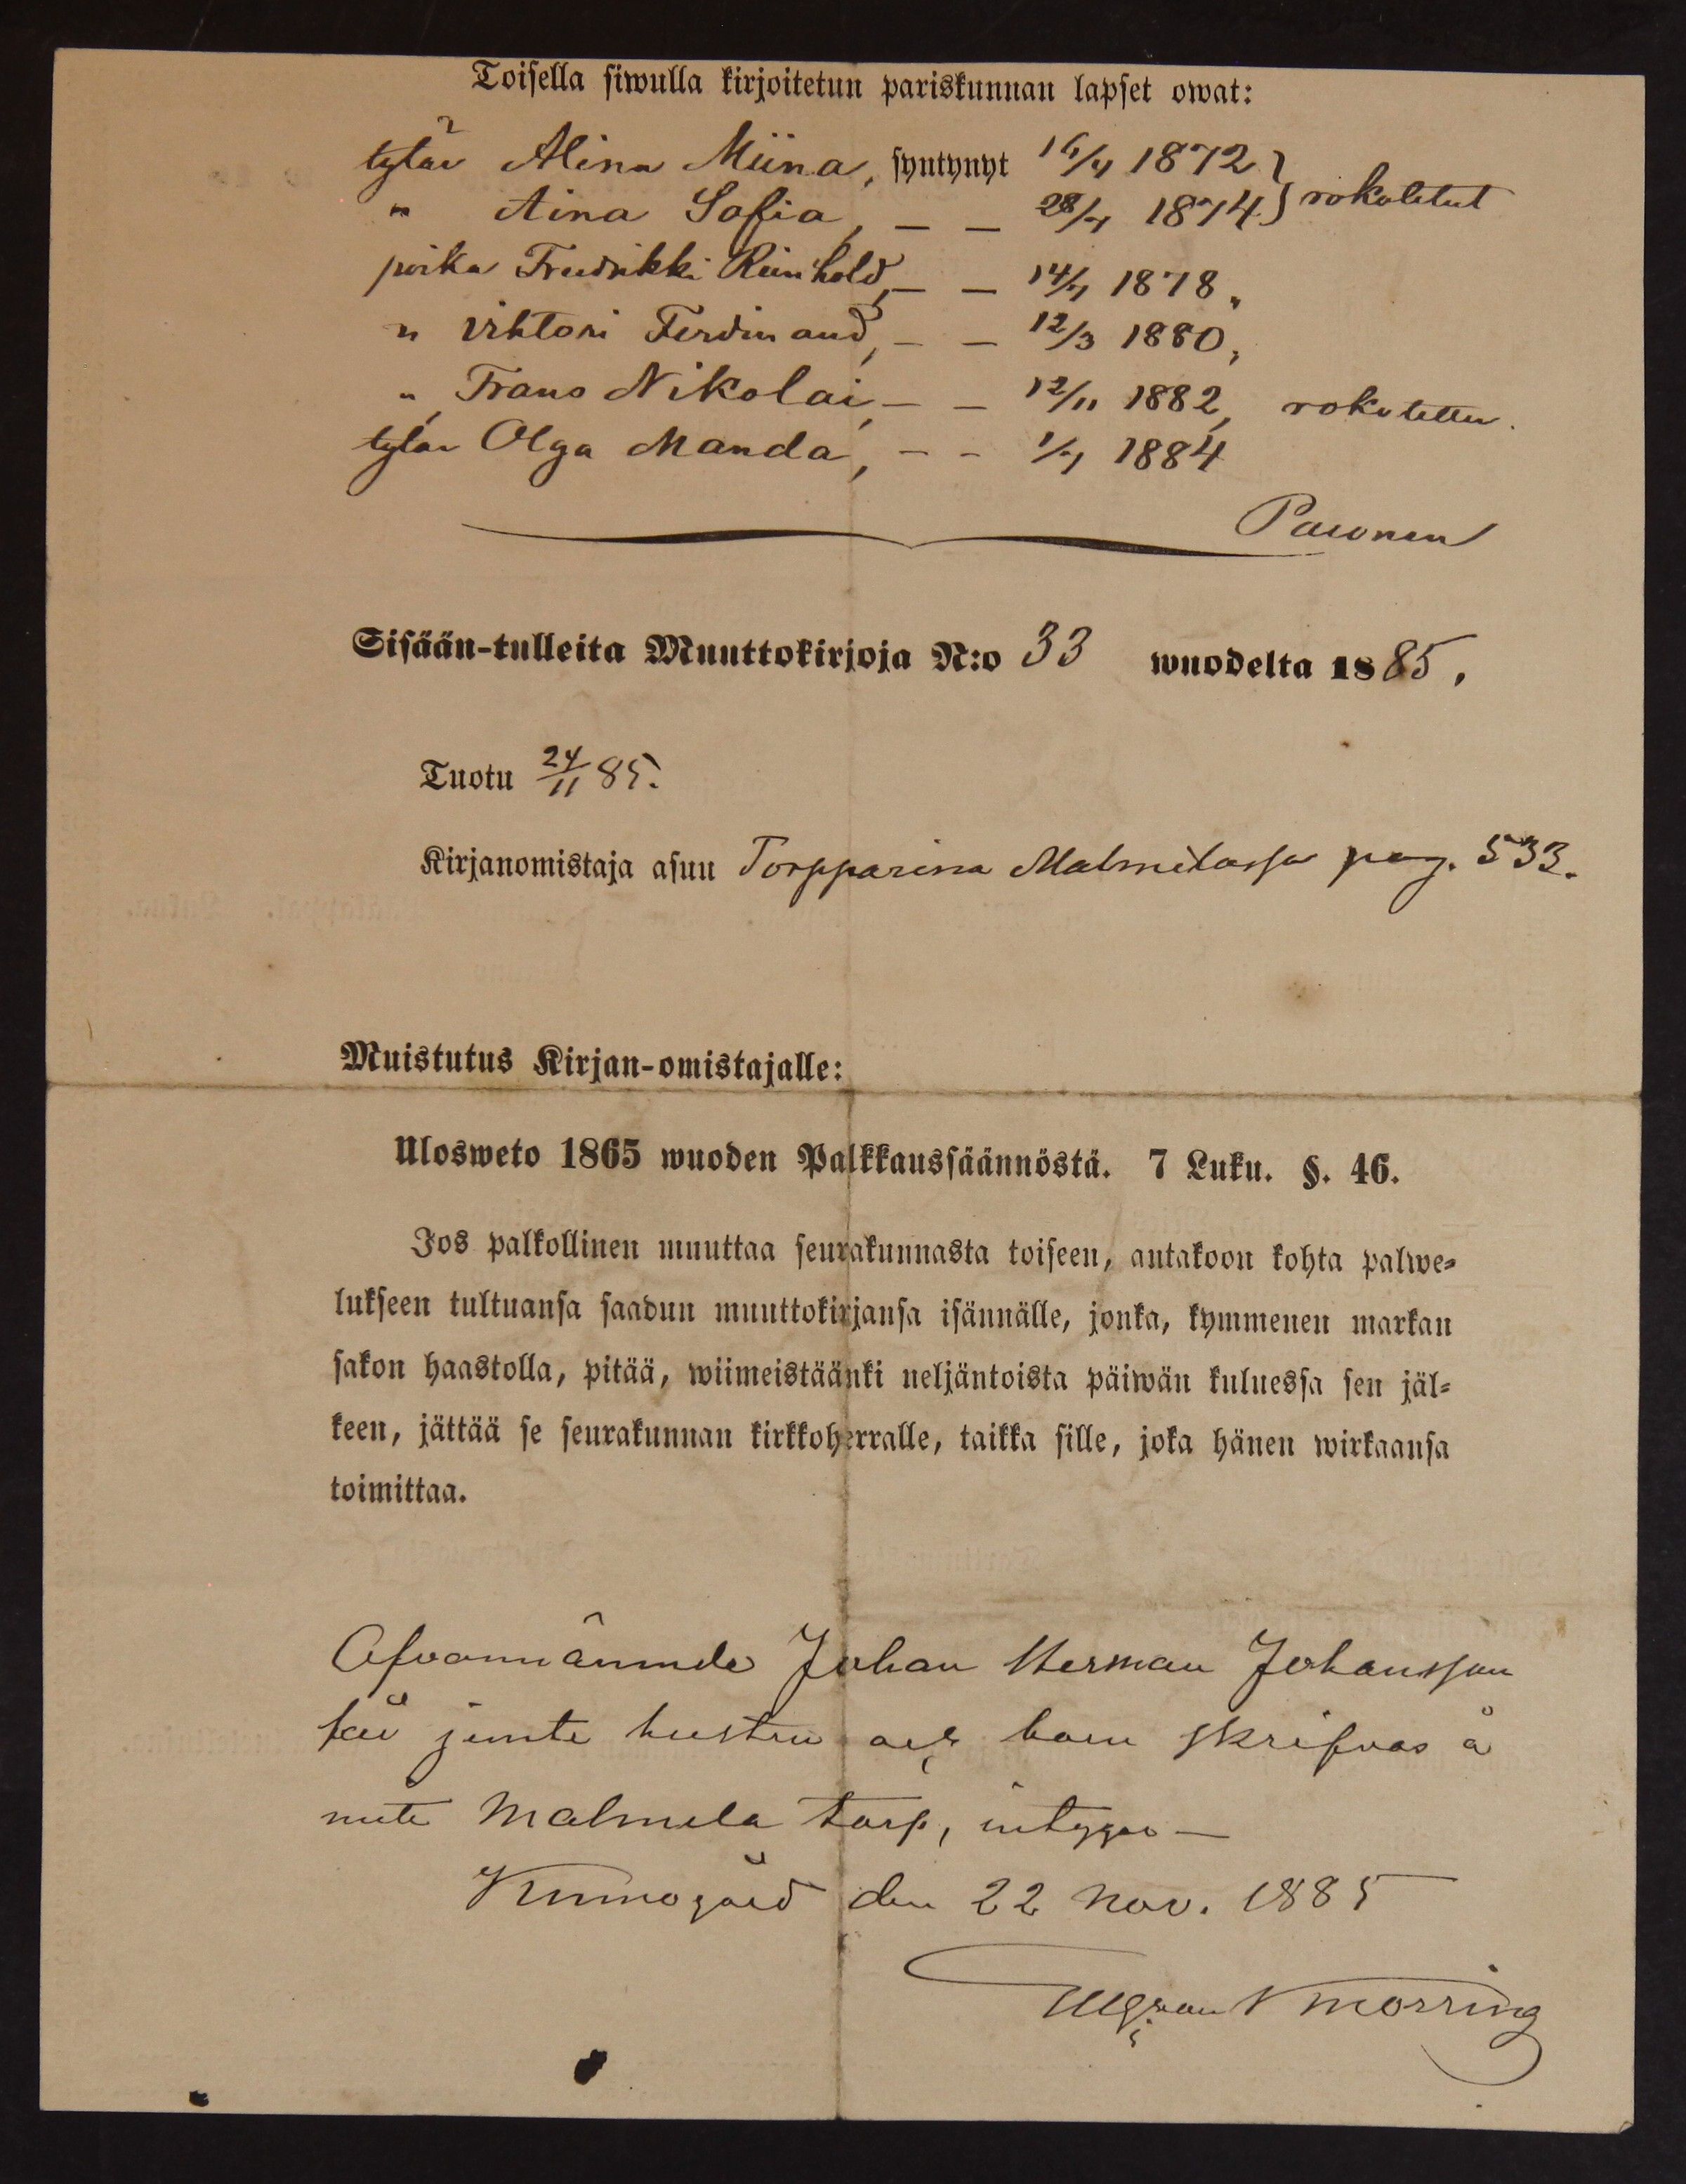 Toisella siwulla kirjoitetun pariskunnan lapset owat:
tytär Alina Miina, syntynyt 16/4 1872
" Aina Sofia, — — 28/4 1874 } rokotetut
poika Fredrikki Reinhold, — — 1878,
" Vihtori Ferdinand, — — 12/3 1880,
" Frans Nikolai, — — 12/11 1882, rokotettu.
tytär Olga Manda, — — 1884
Paronen
Sisään-tulleita Muuttokirjoja N:o 33 wuodelta 1885.
Tuotu 24/11 85.
Kirjanomistaja asuu Torpparina Malmilassa pag. 533.
Muistutus Kirjan-omistajalle:
Ulosweto 1865 wuoden Palkkaussäännöstä. 7 Luku. §. 46.
Jos palkollinen muuttaa seurakunnasta toiseen, antakoon kohta palwe-
lukseen tultuansa saadun muuttokirjansa isännälle, jonka, kymmenen markan
sakon haastolla, pitää, wiimeistäänki neljäntoista päiwän kuluessa sen jäl-
keen, jättää se seurakunnan kirkkoherralle, taikka sille, joka hänen wirkaansa
toimittaa.
Ofvannämnde Johan Herman Johansson
får jemte hustru och barn skrifvas å
mitt Malmela torp, intygar —
den 22 Nov. 1885